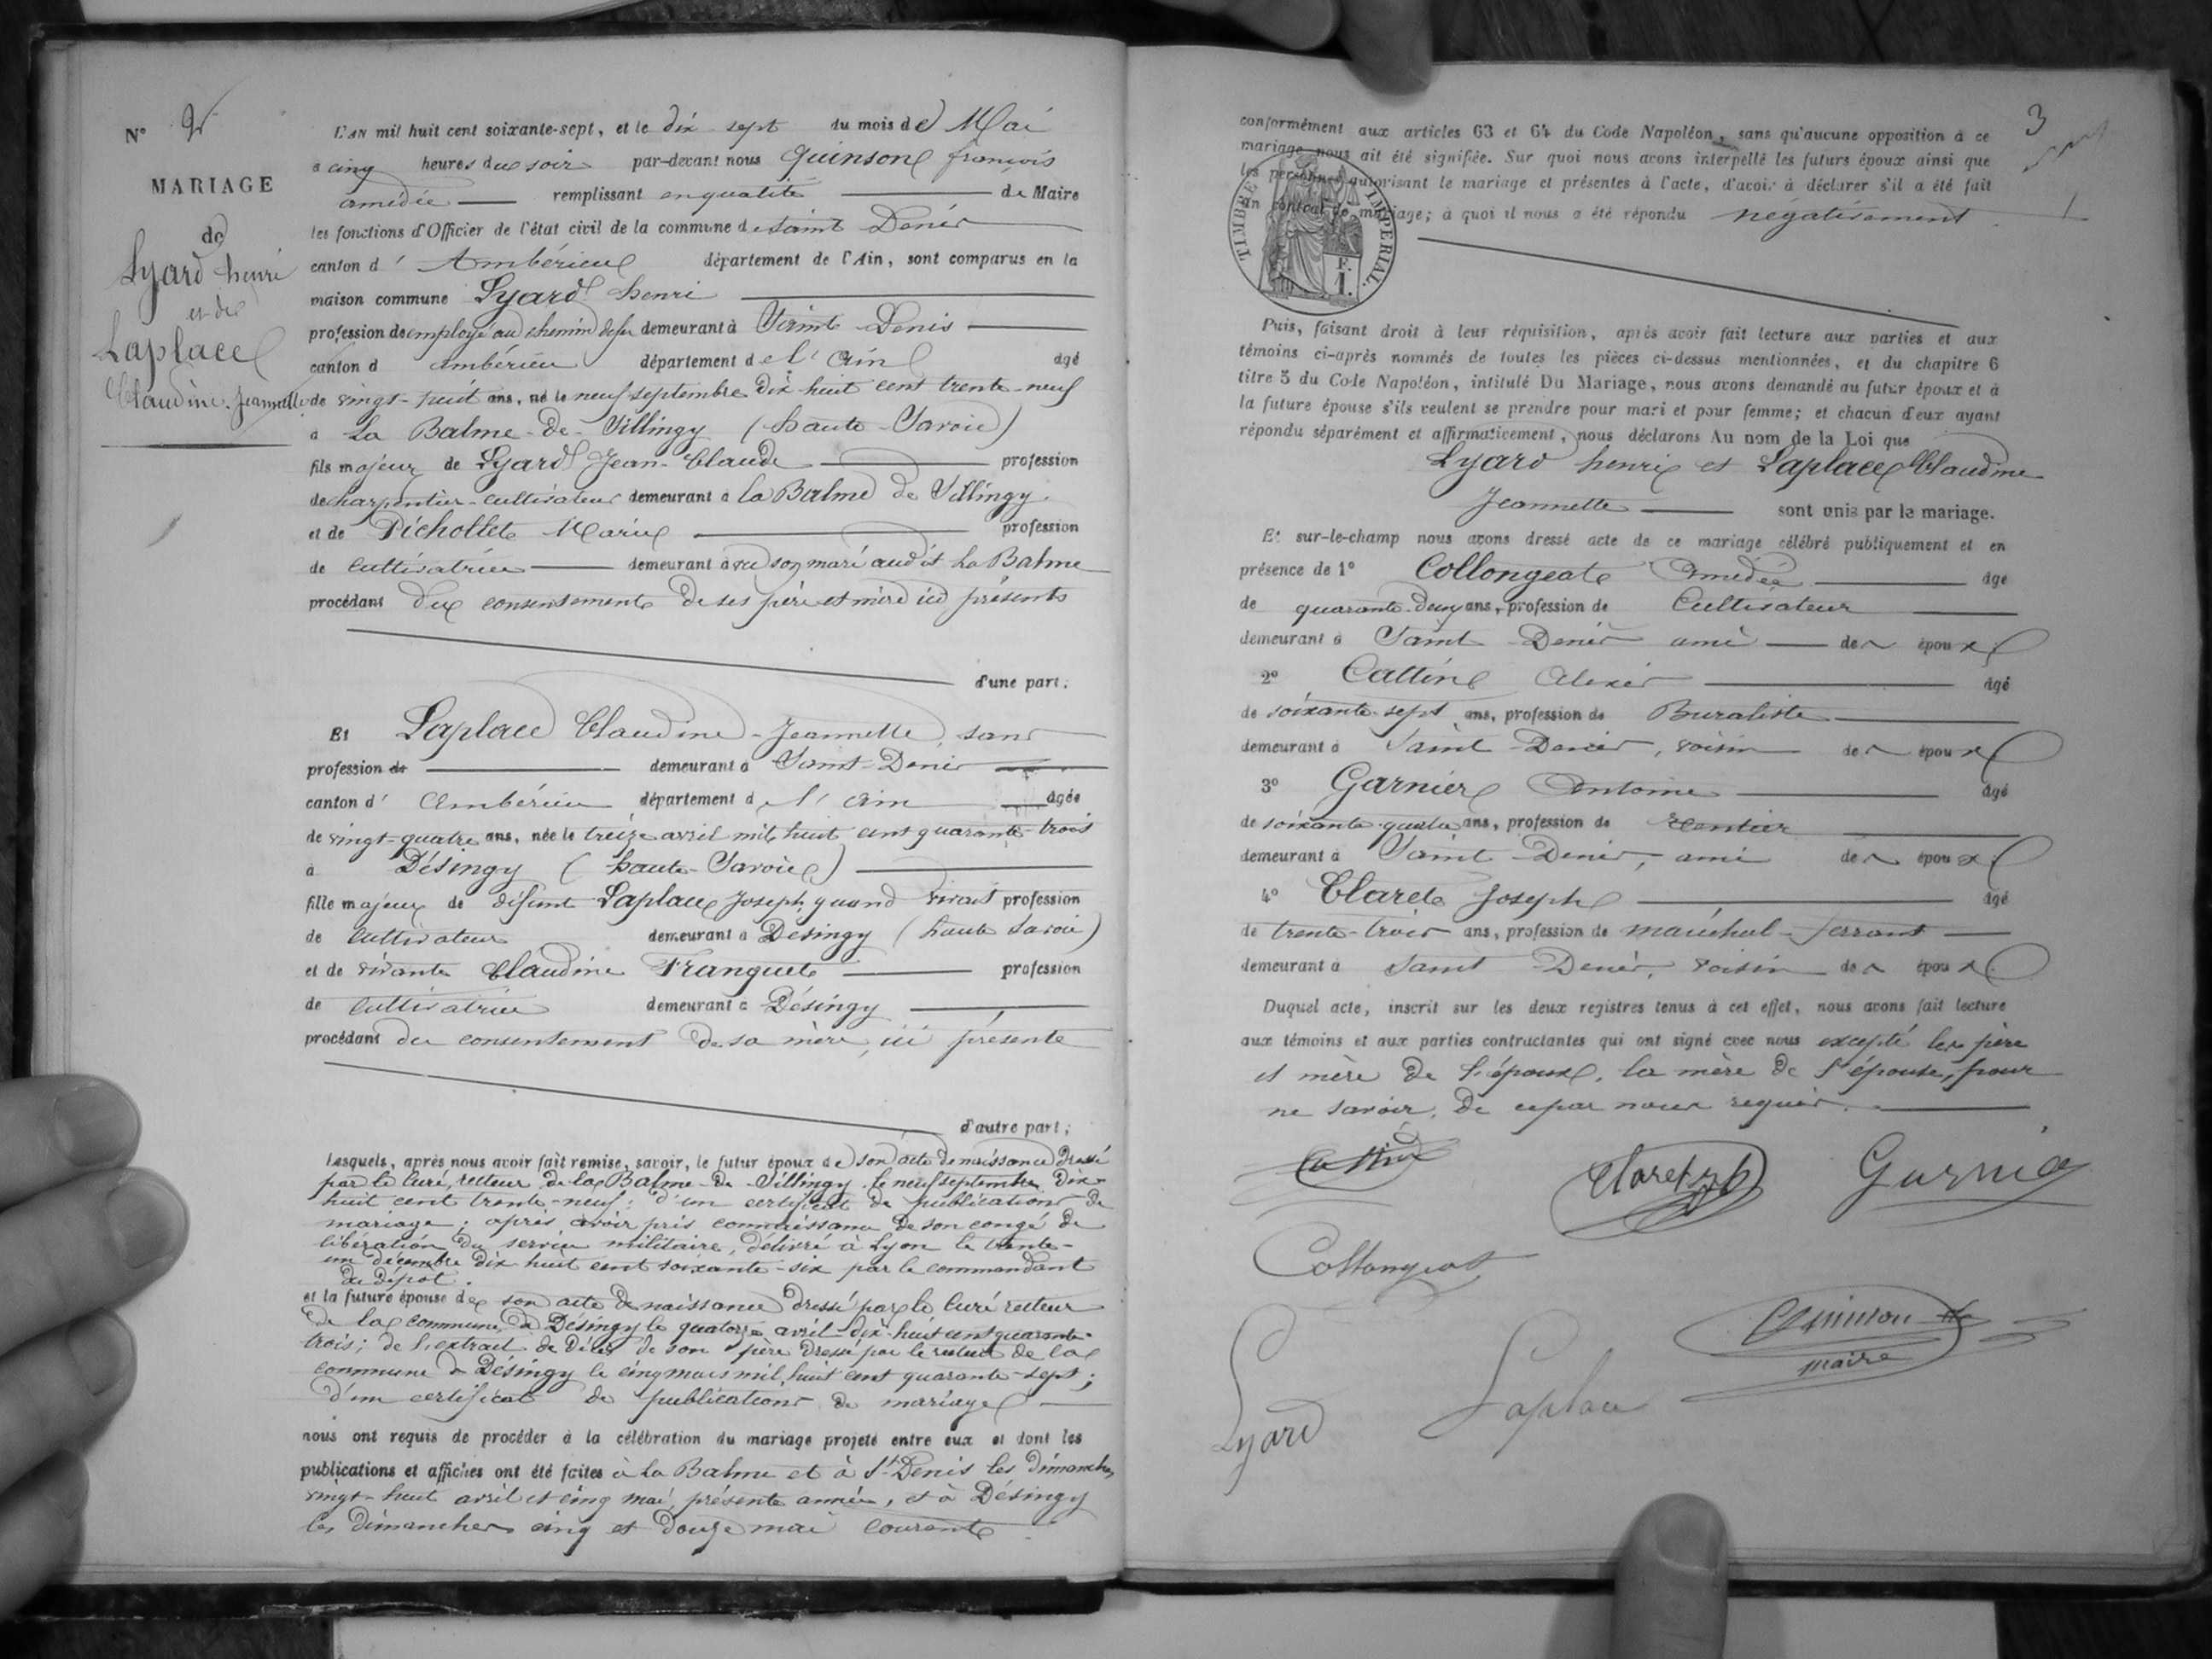 N° 2
MARIAGE
de
Lyard henri
et de
Laplace
Claudine-Jeannette
L'AN mil huit cent soixante-sept, et le dix-sept du mois de Mai
à cinq heures du soir par-devant nous Quinson françois
amédée remplissant en qualité de Maire
les fonctions d'Officier de l'état civil de la commune de Saint Denis
canton d'Ambérieu département de l'Ain, sont comparus en la
maison commune Lyard henri
profession de employé au chemin de fer demeurant à Saint Denis
canton d ambérieu département de l'Ain âgé
de vingt-huit ans, né le neuf septembre dix huit cent trente-neuf
à La Balme-de-Sillingy (haute-Savoie)
fils majeur de Lyard Jean-Claude profession
de charpentier-cultivateur demeurant à la Balme de Sillingy.
et de Pichollet Marie profession
de cultivatrice demeurant avec son mari audit La Balme
procédant du consentement de ses père et mère ici présents
d'une part;
Et Laplace Claudine-Jeannette, sans
profession de demeurant à Saint-Denis
canton d'Ambérieu département de l'Ain âgée
de vingt-quatre ans, née le treize avril mil huit cent quarante-trois
à Désingy (haute-Savoie)
fille majeure de défunt Laplace Joseph, quand vivait profession
de cultivateur demeurant à Désingy (haute Savoie)
et de vivante Claudine Franquet profession
de cultivatrice demeurant à Désingy
procédant du consentement de sa mère, ici présente
d'autre part;
Lesquels, après nous avoir fait remise, savoir, le futur époux de son acte de naissance dressé
par le Curé, recteur de la Balme-de-Sillingy le neuf septembre dix-
huit cent trente-neuf; d'un certificat de publications de
mariage; après avoir pris connaissance de son congé de
libération du service militaire, délivré à Lyon le trente-
un décembre dix huit cent soixante-six par le commandant
de dépôt.
et la future épouse de son acte de naissance dressé par le Curé recteur
de la commune de Désingy le quatorze avril dix-huit cent quarante-
trois; de l'extrait de décès de son père dressé par le recteur de la
commune de Désingy le cinq mars mil huit cent quarante-sept;
d'un certificat de publications de mariage
nous ont requis de procéder à la célébration du mariage projeté entre eux et dont les
publications et affiches ont été faites à La Balme et à St Denis les dimanches
vingt-huit avril et cinq mai, présente année, et à Désingy
les dimanches cinq et douze mai courant
3
conformément aux articles 63 et 64 du Code Napoléon, sans qu'aucune opposition à ce
mariage nous ait été signifiée. Sur quoi nous avons interpellé les futurs époux ainsi que
les personnes autorisant le mariage et présentes à l'acte, d'avoir à déclarer s'il a été fait
un contrat de mariage; à quoi il nous a été répondu négativement
TIMBRE IMPÉRIAL.
F.
1.
Puis, faisant droit à leur réquisition, après avoir fait lecture aux parties et aux
témoins ci-après nommés de toutes les pièces ci-dessus mentionnées, et du chapitre 6
titre 5 du Code Napoléon, intitulé Du Mariage, nous avons demandé au futur époux et à
la future épouse s'ils veulent se prendre pour mari et pour femme; et chacun d'eux ayant
répondu séparément et affirmativement, nous déclarons Au nom de la Loi que
Lyard henri et Laplace Claudine
Jeannette sont unis par le mariage.
Et sur-le-champ nous avons dressé acte de ce mariage célébré publiquement et en
présence de 1° Collongeat Amédée âgé
de quarante-deux ans, profession de Cultivateur
demeurant à Saint Denis ami des époux
2° Cattin Alexis âgé
de soixante-sept ans, profession de Buraliste
demeurant à Saint-Denis, voisin des époux
3° Garnier Antoine âgé
de soixante-quatre ans, profession de rentier
demeurant à Saint-Denis, ami des époux
4° Claret Joseph âgé
de trente-trois ans, profession de maréchal-ferrant
demeurant à Saint Denis, voisin des époux
Duquel acte, inscrit sur les deux registres tenus à cet effet, nous avons fait lecture
aux témoins et aux parties contractantes qui ont signé avec nous excepté les père
et mère de l'époux, la mère de l'épouse, pour
ne savoir, de ce par nous requis.
Cattin
Claret
Garnier
Collongeat
Quinson
maire
Lyard
Laplace